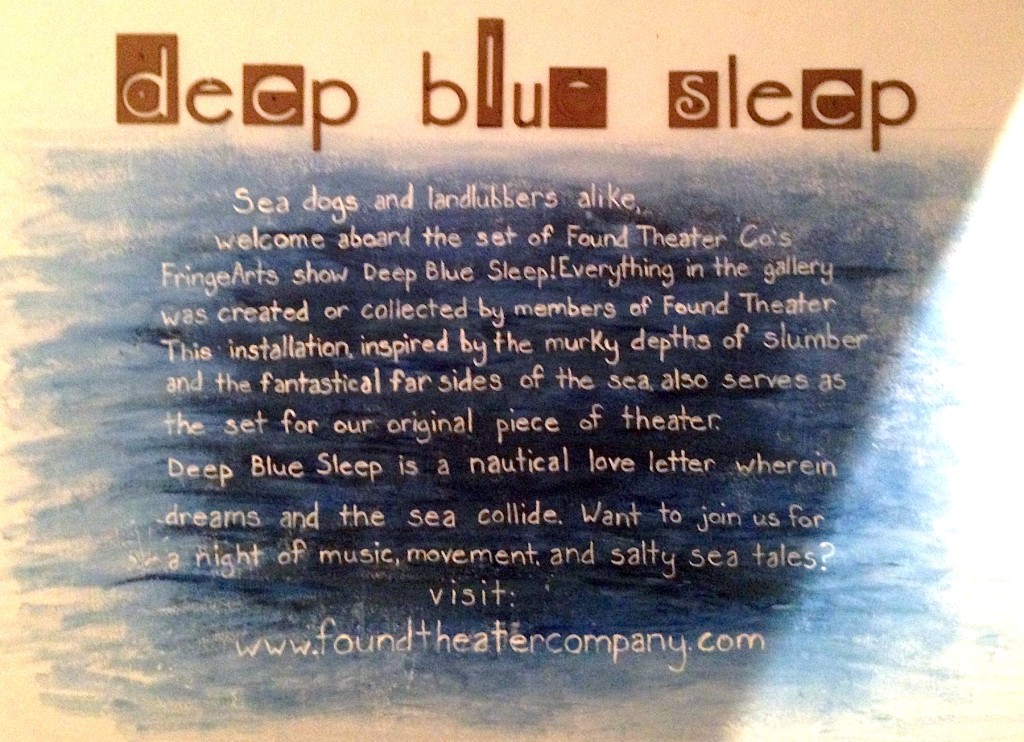 deep blue sleep
Sea dogs and landlubbers alike,
welcome aboard the set of Found Theater Co's
FringeArts show Deep Blue Sleep! Everything in the gallery
was created or collected by members of Found Theater
This installation, inspired by the murky depths of slumber
and the fantastical far sides of the sea, also serves as
the set for our original piece of theater.
Deep Blue Sleep is a nautical love letter wherein
dreams and the sea collide. Want to join us for
a night of music, movement, and salty sea tales?
visit:
www.foundtheatercompany.com